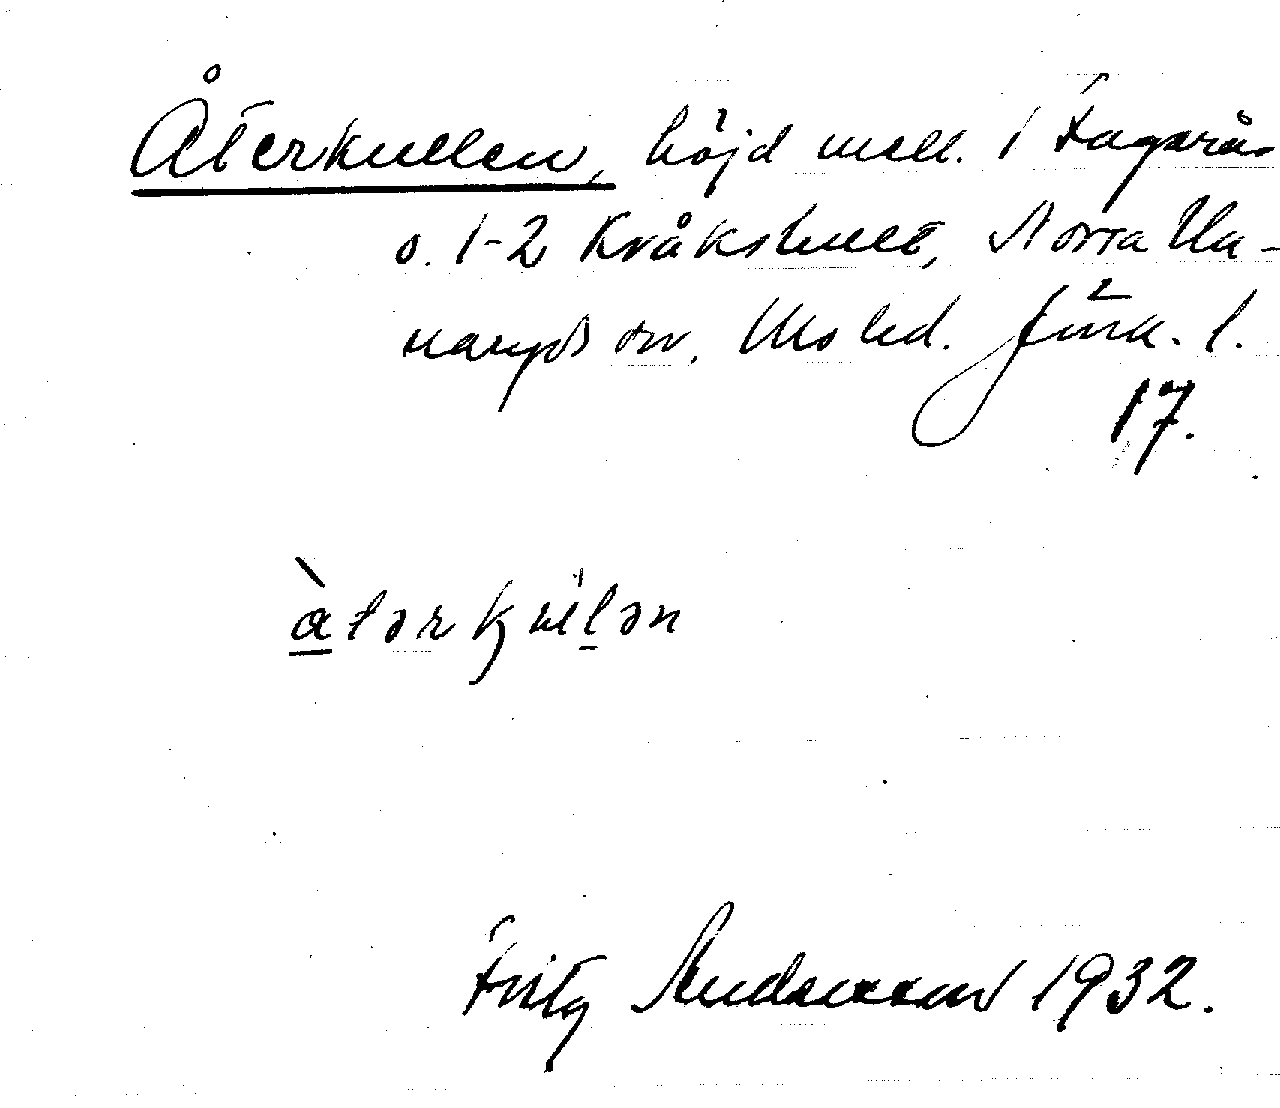 Återkullen, höjd mell. 1 Fagerås
o. 1-2 Kråkshult, Norra Un-
naryds sn, Mo hd. Jönk. l.
17.
àtərkuln
Fritz Andersson 1932.